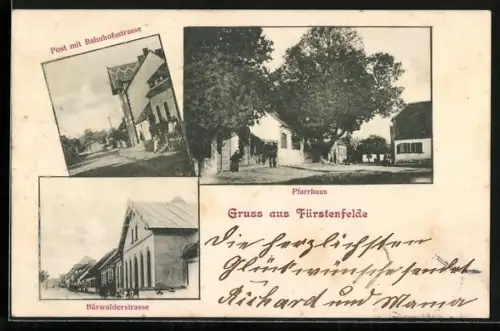 Post mit Bahnhofsstrasse
Pfarrhaus
Gruss aus Fürstenfelde
Bärwalderstrasse
Die herzlichsten
Glückwünsche sendet
Richard und Mama